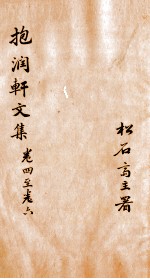 抱润軒文集 卷四至卷六
松石高主署